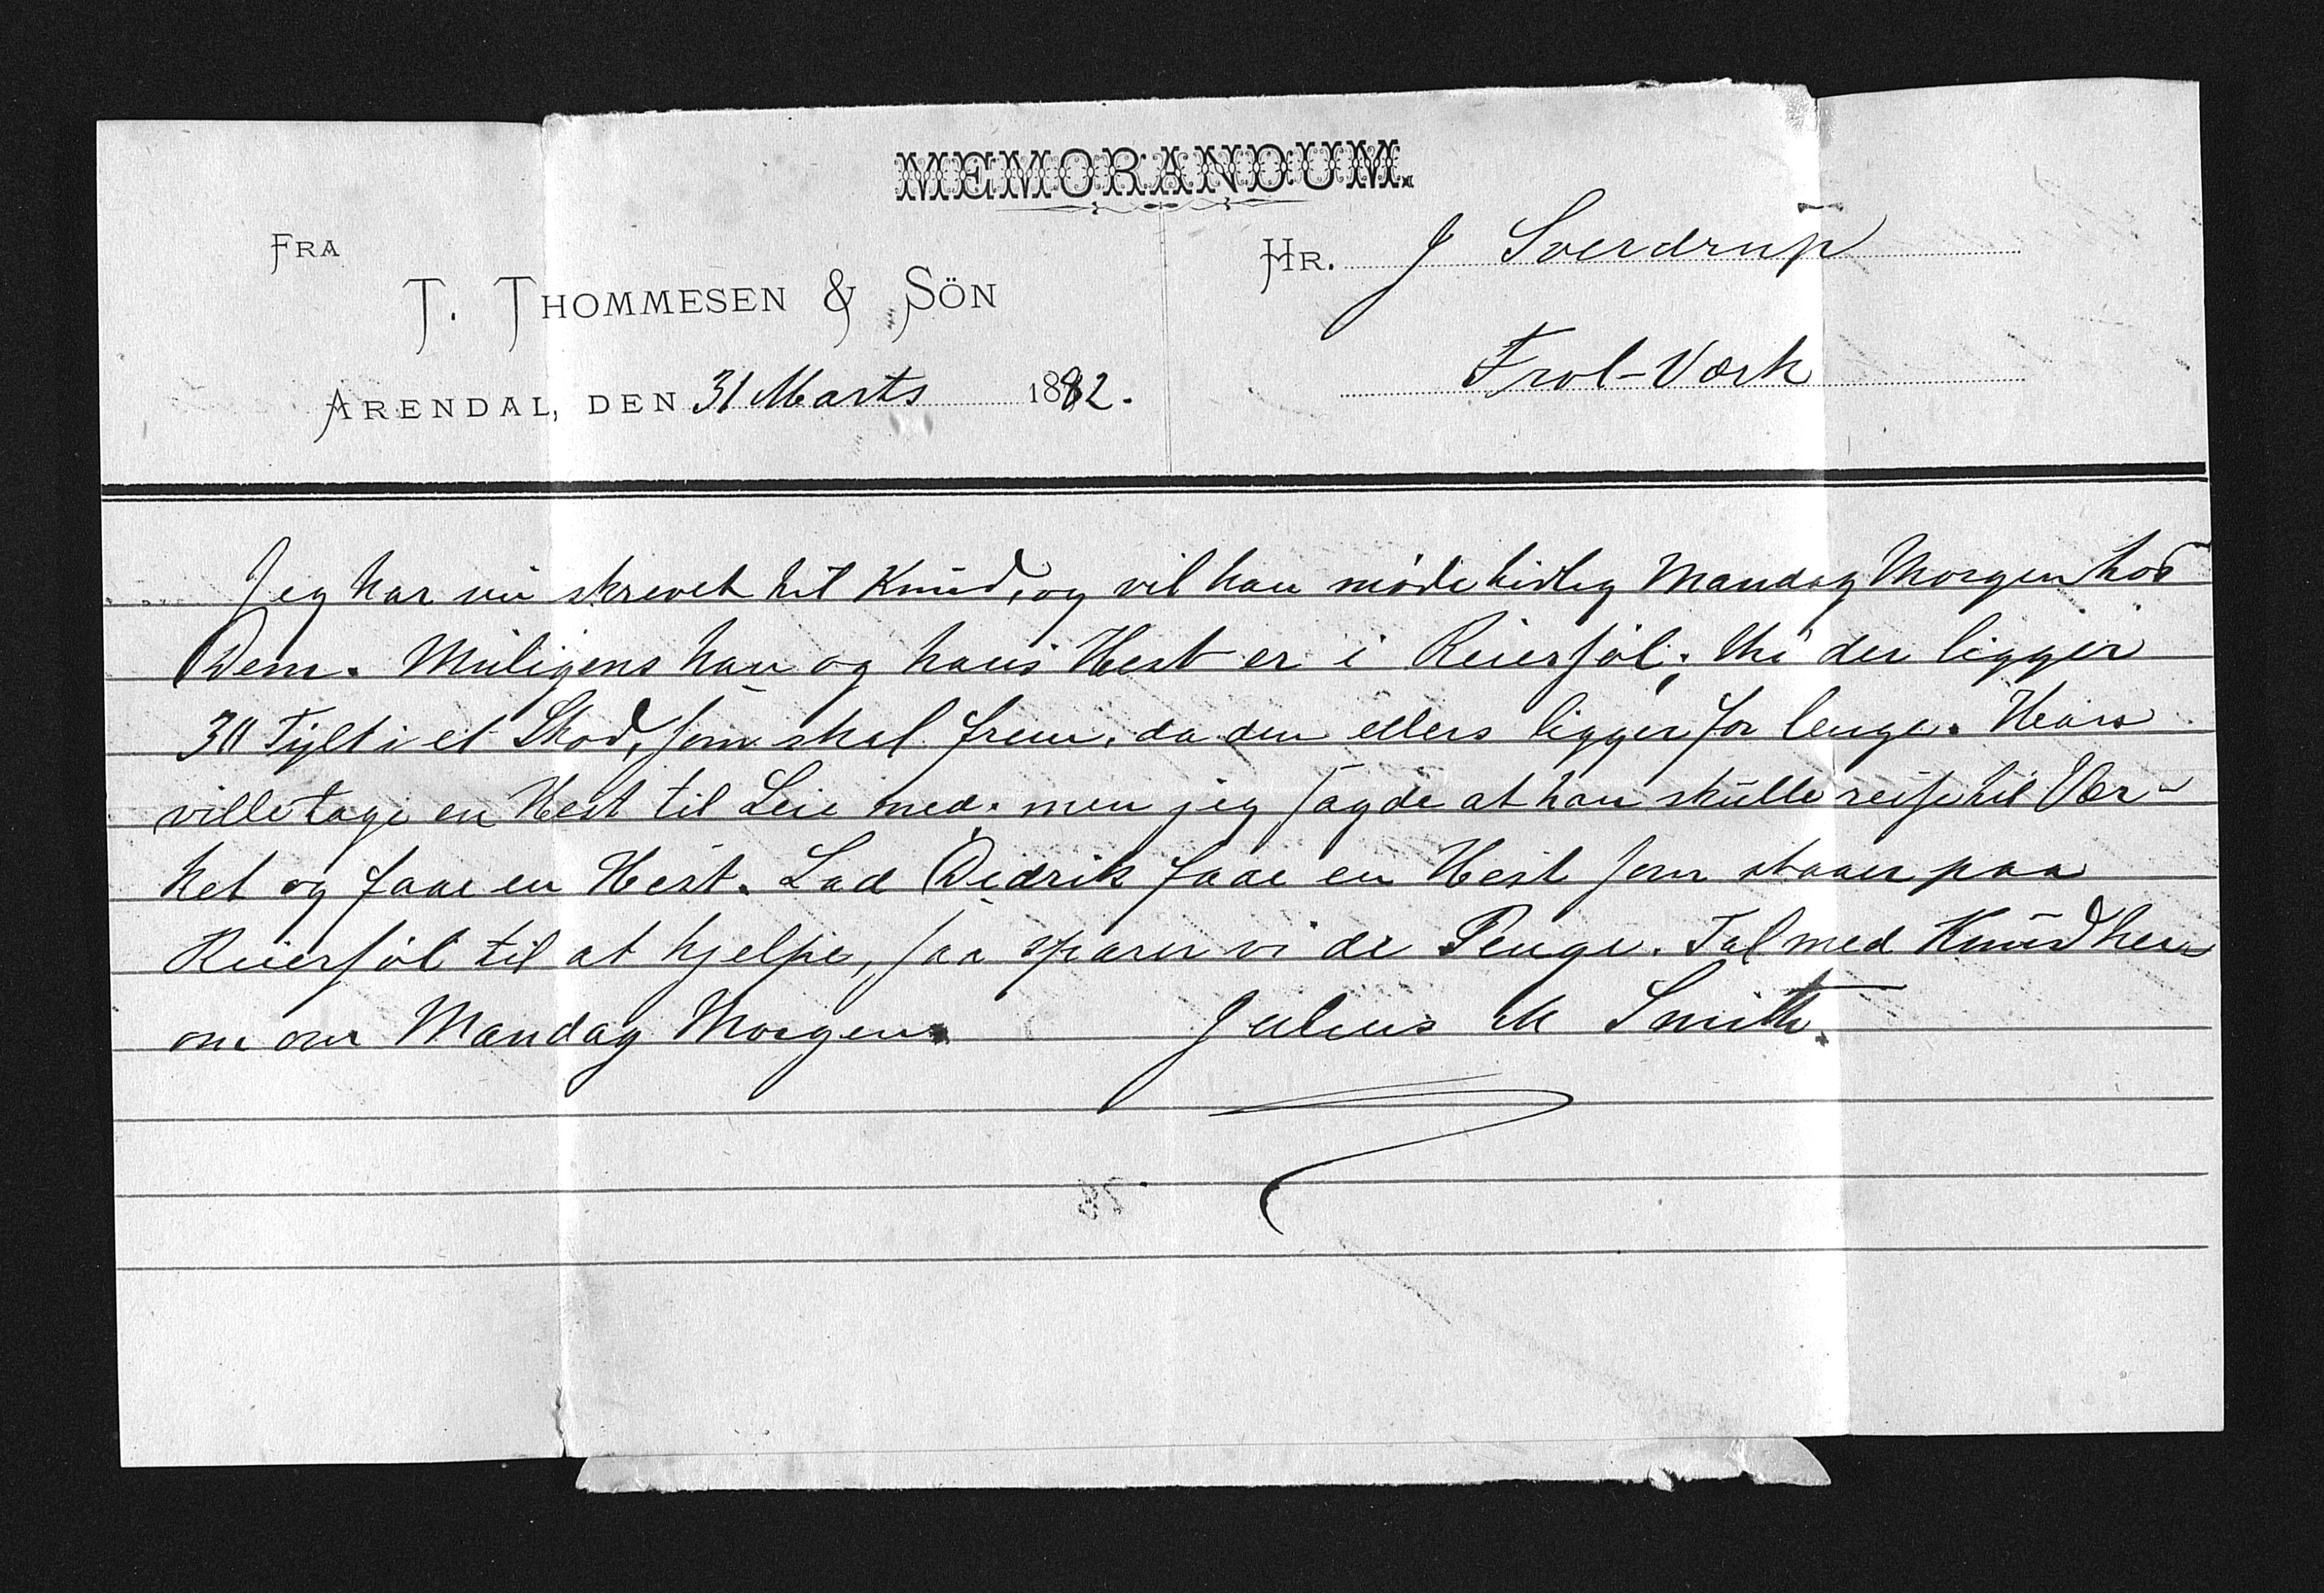 MEMORANDUM.
FRA
T. THOMMESEN & SÖN
ARENDAL, DEN 31 Marts 1882.
HR. J Sverdrup
Frol-Værk
Jeg har nu skrevet til Knud, og vil han møde tidlig Mandag Morgen hos
Dem. Muligens han og hans Hest er i Reiersøl; thi der ligger
30 Tylt i et Skod, som skal frem, da den ellers ligger for lenge. Hans
ville tage en Hest til Leie med. men jeg sagde at han skulle reise til Vær-
ket og faae en Hest. Lad Didrik faae en Hest som staaer paa
Reiersøl til at hjelpe, saa sparer vi de Penge. Tal med Knud her
om om Mandag Morgen. Julius M Smith.